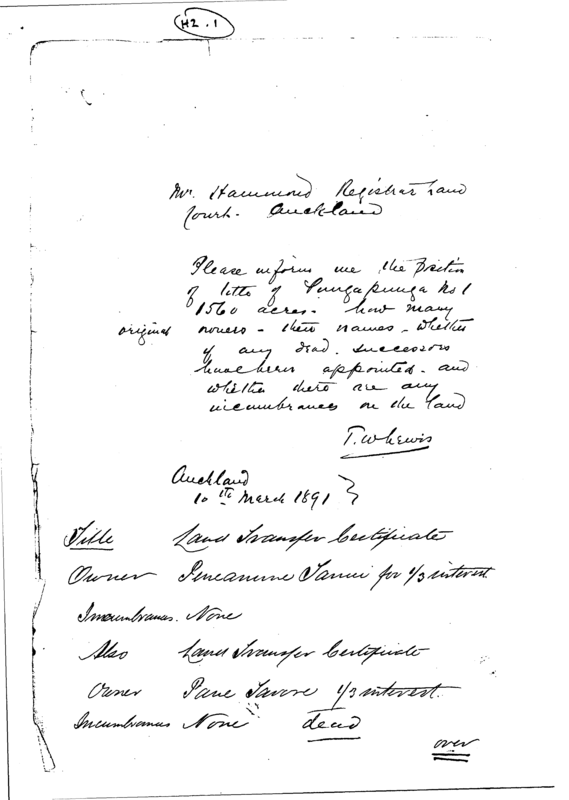 H2.1
Mr. Hammond Registrar Land
Court. Auckland
Please inform me the Position
of title of Pungapunga No 1
1560 acres. how many
original owners - their names - whether
if any dead. successors
have been appointed - and
whether there are any
incumbrances on the land
T. W. Lewis
Auckland
10th March 1891
Title Land Transfer Certificate
Owner Tanui for 1/3 interest
Incumbrances. None
Also Land Transfer Certificate
Owner Pane 1/3 interest.
Incumbrances None dead
over